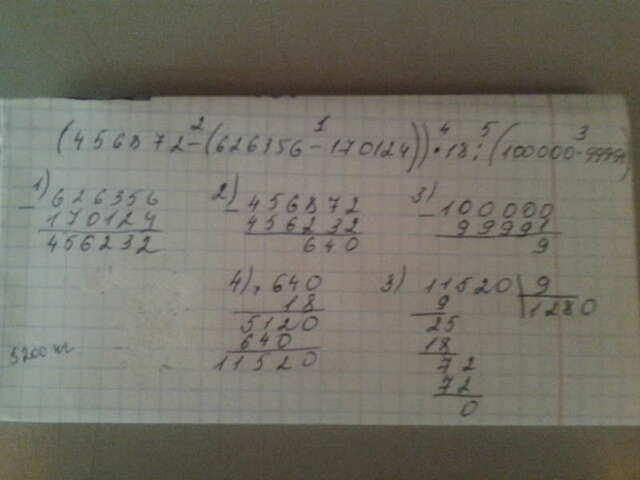 2 1 4 5 3
(456872-(626356-170124))·18:(100000-99991)
1) 626356
- 170124
456232
2) 456872
- 456232
640
3) 100000
- 99991
9
4) × 640
18
5120
640
11520
3) 11520 | 9
9 1280
25
18
72
72
0